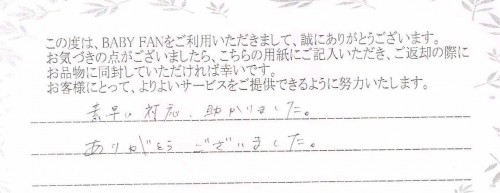 この度は、BABY FANをご利用いただきまして、誠にありがとうございます。
お気づきの点がございましたら、こちらの用紙にご記入いただき、ご返却の際に
お品物に同封していただければ幸いです。
お客様にとって、よりよいサービスをご提供できるように努力いたします。
素早い対応、助かりました。
ありがとうございました。